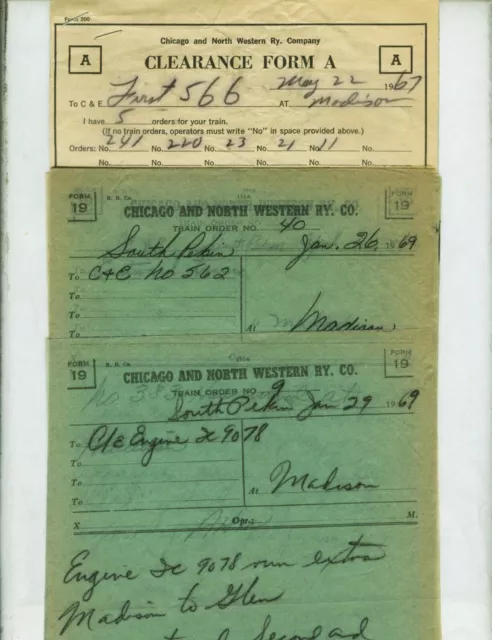 Form 200
Chicago and North Western Ry. Company
A CLEARANCE FORM A A
May 22 1967
To C & E First 566 AT Madison
I have 5 orders for your train.
(If no train orders, operators must write "No" in space provided above.)
Orders: No. 241 No. 220 No. 23 No. 21 No. 11
No. No. No. No. No.
FORM 19 FORM 19
CHICAGO AND NORTH WESTERN RY. CO.
TRAIN ORDER NO. 40
South Pekin Jan. 26, 1969
To C+E No 562
To
To
To At Madison
FORM 19 FORM 19
CHICAGO AND NORTH WESTERN RY. CO.
TRAIN ORDER NO. 9
South Pekin Jan 29 1969
To C/E Engine Ic 9078
To
To
To At Madison
X Opr.; M.
Engine Ic 9078 run extra
Madison to Glen
Second